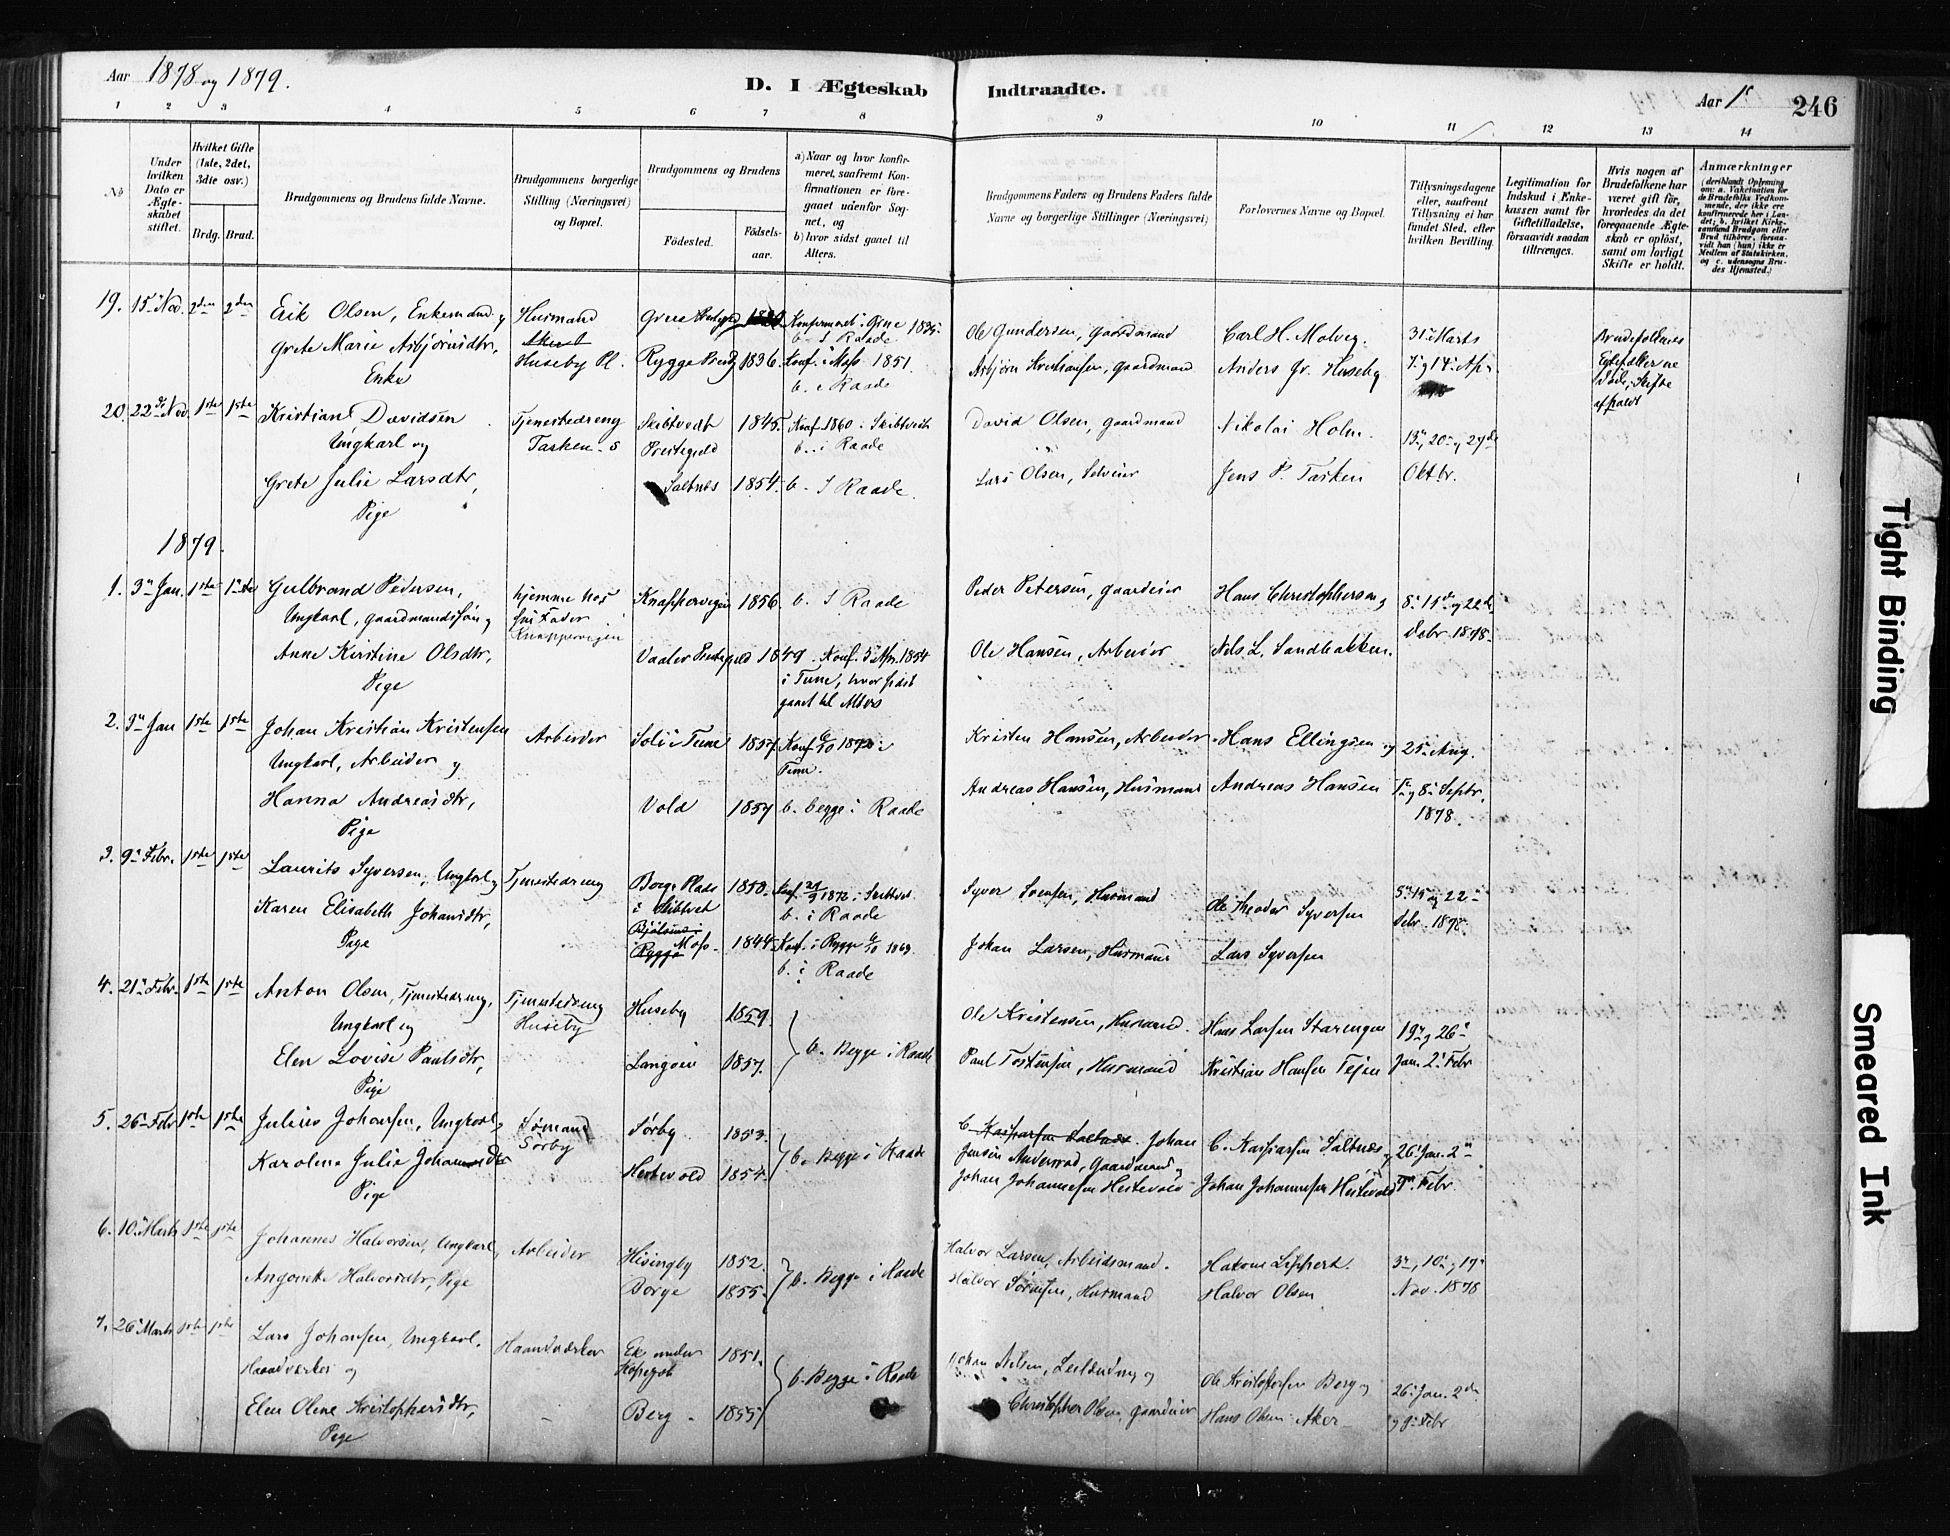 Aar 1878 og 1879.
D. I Ægteskab Indtraadte.
Aar 1
246
1 2 3 4 5 6 7 8 9 10 11 12 13 14
No
Under hvilken Dato er Ægteskabet stiftet.
Hvilket Gifte (1ste, 2det, 3die osv.)
Brdg. Brud.
Brudgommens og Brudens fulde Navne.
Brudgommens borgerlige Stilling (Næringsvei) og Bopæl.
Brudgommens og Brudens
Födested.
Födselsaar.
a) Naar og hvor konfirmeret, saafremt Konfirmationen er foregaaet udenfor Sognet, og
b) hvor sidst gaaet til Alters.
Brudgommens Faders og Brudens Faders fulde Navne og borgerlige Stillinger (Næringsvei)
Forlovernes Navne og Bopæl.
Tillysningsdagene eller, saafremt Tillysning ei har fundet Sted, efter hvilken Bevilling.
Legitimation for Indskud i Enkekassen samt for Giftetilladelse, forsaavidt saadan tiltrænges.
Hvis nogen af Brudefolkene har været gift för, hvorledes da det foregaaende Ægteskab er oplöst, samt om lovligt Skifte er holdt.
Anmærkninger
(deriblandt Oplysning om: a. Vakcination for de Brudefolks Vedkommende, der ikke ere konfirmerede her i Landet; b. hvilket Kirkesamfund Brudgom eller Brud tilhörer, forsaavidt han (hun) ikke er Medlem af Statskirken, og c. udensogns Brudes Hjemsted.)
19. 15 Nov. 2den 2den Erik Olsen, Enkemand og Husmand
Ole Gundersen, Gaardmand Carl H. Molvig. 31 Marts
Grete Marie Asbjørnsdtr, Huseby Pl. Rygge 1836. Konf. i Moss 1851.
Enke b. i Raade
Anders Gr. Huseby 7 og 14 Apr
20. 22de Nov. 1ste 1ste Kristian Davidsen Tjenestedreng Skibtvedt 1845. Konf. 1860 i Skibtvedt
Ungkarl og Tasken Præstegjeld b. i Raade
David Olsen, Gaardmand Nikolai Holm. 13, 20 og 27de
Grete Julie Larsdtr, Saltnes 1854. b. i Raade.
Lars Olsen, Selveier Jens P. Tasken Oktbr.
Pige
1879.
1. 3 Jan. 1ste 1ste Gulbrand Pedersen, hjemme hos Knappervigen 1856. b. i Raade
Ungkarl, Gaardmandssøn og sin Fader Knappervigen
Peder Petersen, Gaardeier Hans Christophersen 8 15de og 22de
Debr. 1878.
Anne Kirstine Olsdtr, Vaaler Prestegjeld 1849. Konf. 1854
Pige i Tune, hvor sidst gaaet til Alters
Ole Hansen, Arbeider Nils L. Sandbakken.
2. 3 Jan 1ste 1ste Johan Kristian Kristensen Arbeider Soli i Tune 1857. Konf. 6/10
Ungkarl, Arbeider og Tune.
Kristen Hansen, Arbeider Hans Ellingsen og 25 Aug.
Hanna Andreasdtr, Vold 1857 b. begge i Raade
Andreas Hansen, Husmand Andreas Hansen 1 og 8 Septr. 1878.
Pige
3. 9 Febr. 1ste 1ste Laurits Syversen, Ungkarl og Tjenestedreng 1850. Konf. 1872 i Skibtvet
i Skibtvet b. i Raade
Syver Svensen, Husmand Ole Theodor Syversen 15 og 22
Debr. 1878.
Karen Elisabeth Johansdtr, Rygge Moss 1844. Konf. i Rygge
Pige b. i Raade
Johan Larsen, Husmand Lars Syversen
4. 21 Febr. 1ste 1ste Anton Olsen, Tjenestedreng, Tjenestedreng Huseby 1859.
Ungkarl og Huseby b. Begge i Raade
Ole Kristensen, Husmand. Hans Larsen Starengen 19 og 26
Elen Lovise Paulsdtr, Langøien 1857.
Paul Tostensen, Husmand Kristian Hansen Tejen Jan. 2 Febr
Pige
5. 26 Febr 1ste 1ste Julius Johansen, Ungkarl, Sømand Sørby 1853.
Sørby b. Begge i Raade
C. Kaspersen Saltnes. Johan
Karoline Julie Johannesdtr Hestevold 1854.
Jensen, Gaardmand og C. Kaspersen Saltnes og 26 Jan. 2
Pige
Johan Johannesen Hestevold Johan Johannesen Hestevold 9 Febr.
6. 10 Marts 1ste 1ste Johannes Halvorsen, Ungkarl, Arbeider 1852.
Angonette Halvorsdtr, Pige Borge 1855. b. Begge i Raade
Halvor Larsen, Arbeidsmand. 3, 10 og 17
Halvor Sørensen, Husmand Halvor Olsen Nov. 1878
7. 26 Marts 1ste 1ste Lars Johansen, Ungkarl. Haandværker Ek under 1851.
Haandværker og b. Begge i Raade
Johan Nilsen, og Ole Kristophersen Berg og 26 Jan. 2den
Elen Oline Kristophersdtr, Berg 1855
Christopher Olsen Gaardeier Hans Olsen Aker og 9 Febr
Pige
Tight Binding
Smeared Ink